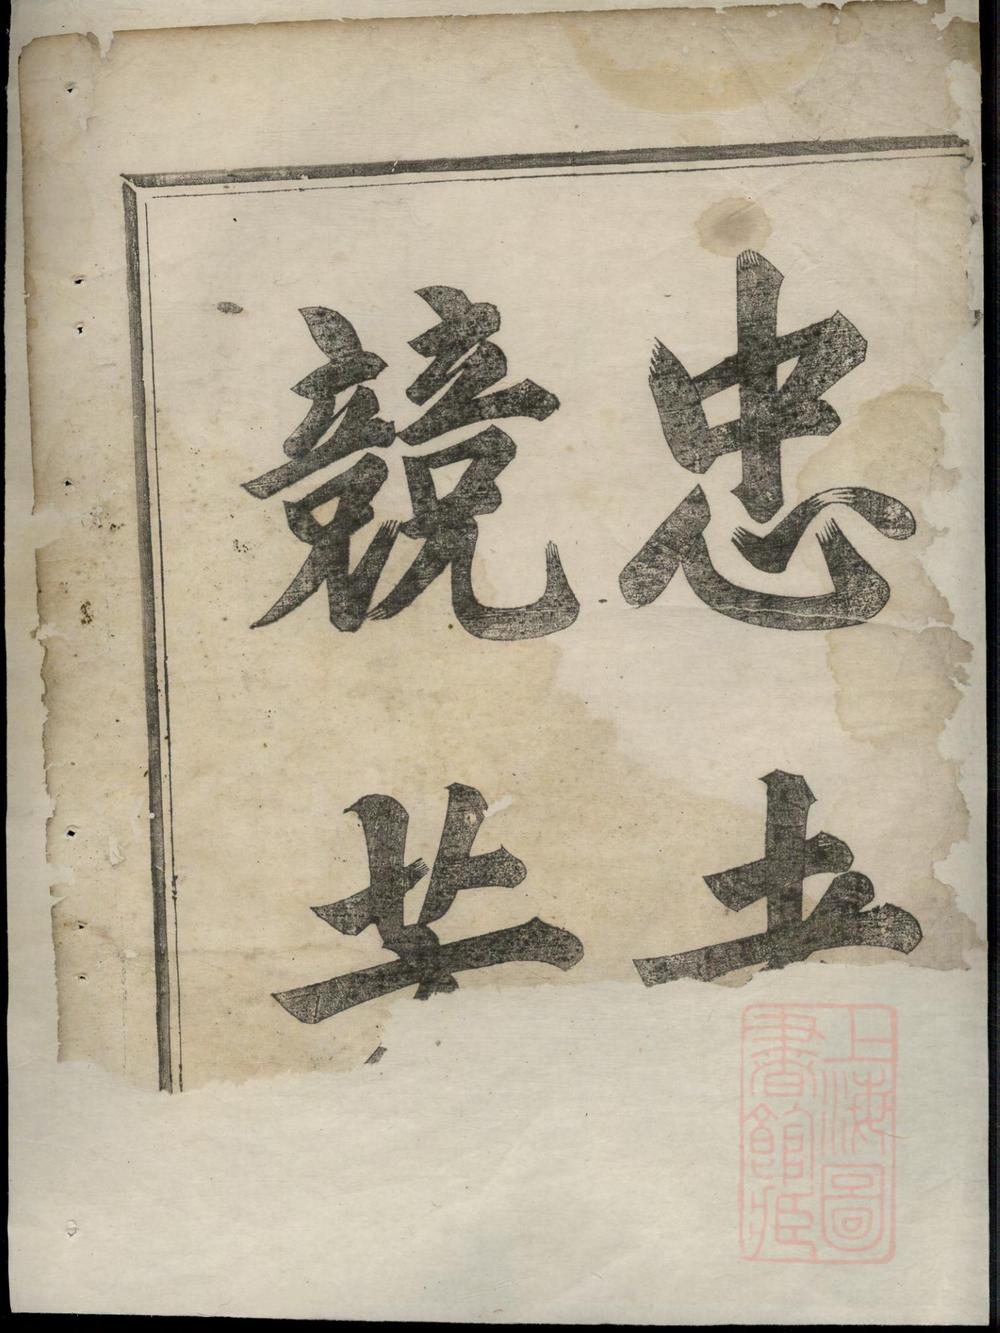 忠
競
上海圖
書館藏